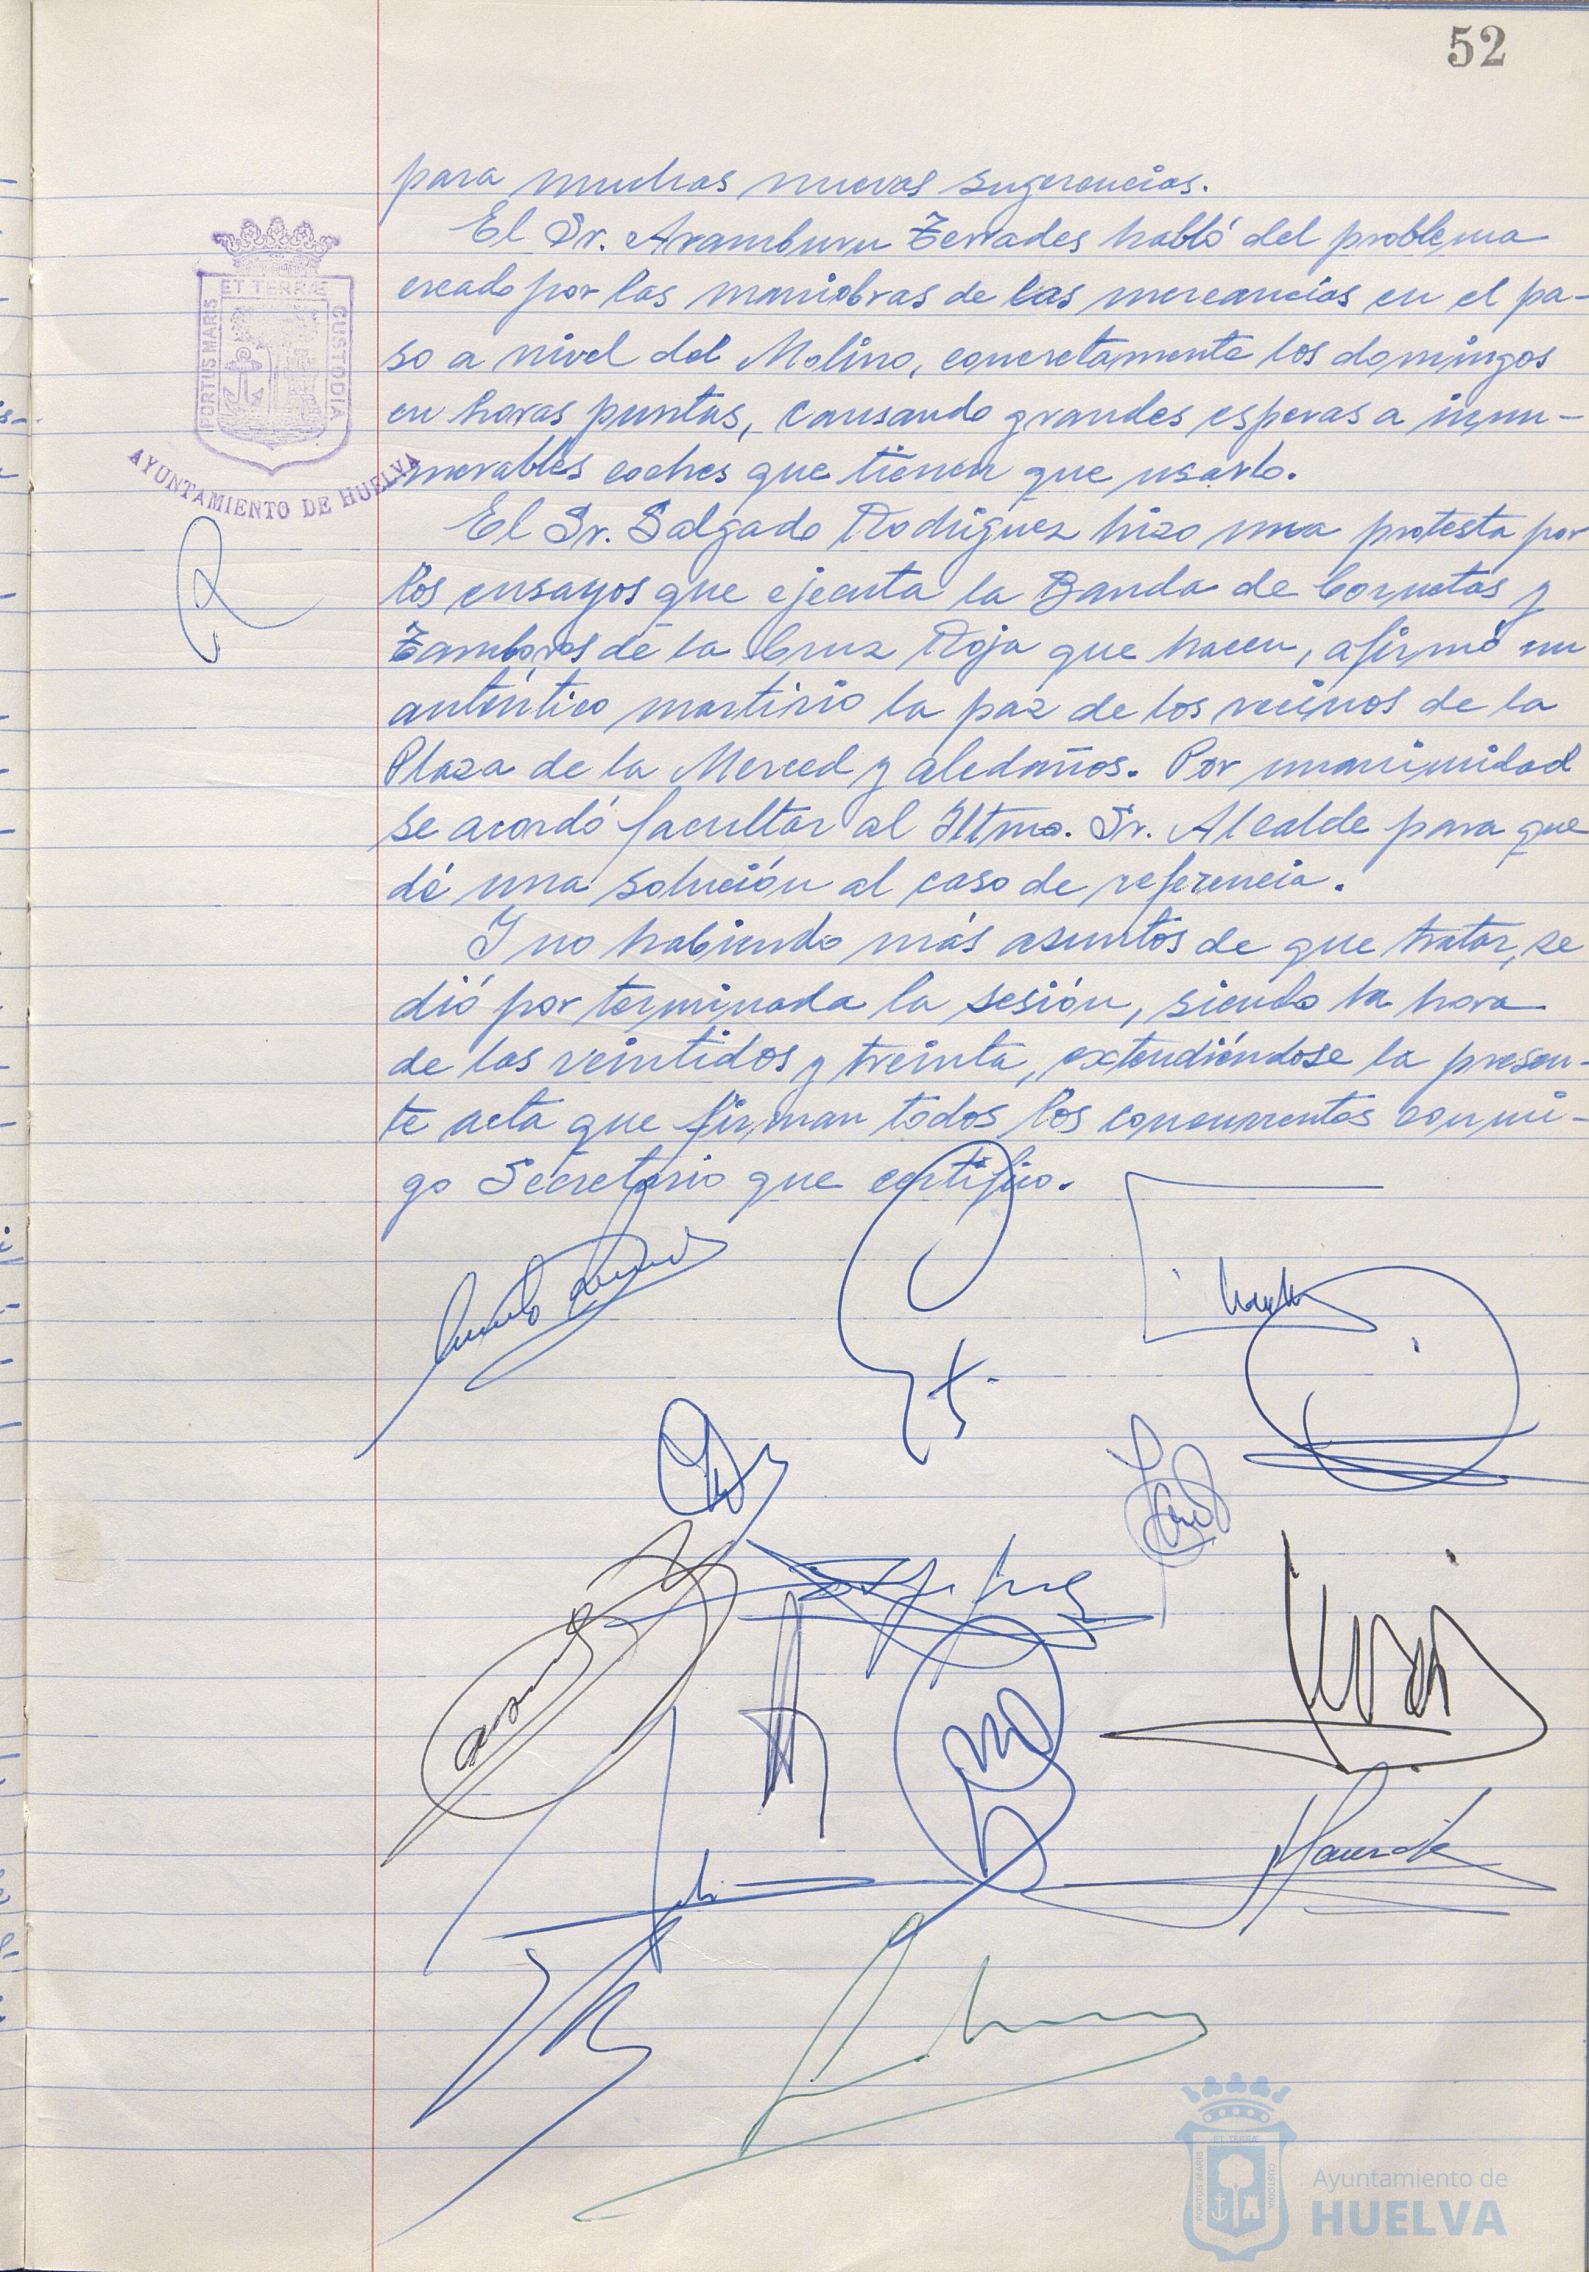 52
para muchas nuevas sugerencias.
El Sr. Aramburu Terrades habló del problema
creado por las maniobras de las mercancías en el pa-
so a nivel del Molino, concretamente los domingos
en horas puntas, causando grandes esperas a innu-
merables coches que tienen que usarlo.
El Sr. Salgado Rodriguez hizo una protesta por
los ensayos que ejecuta la Banda de Cornetas y
Tambores de la Cruz Roja que hacen, afirmó un
auténtico martirio la paz de los vecinos de la
Plaza de la Merced y aledaños. Por unanimidad
se acordó facultar al Iltmo. Sr. Alcalde para que
dé una solución al caso de referencia.
Y no habiendo más asuntos de que tratar, se
dió por terminada la sesión, siendo la hora
de las veintidos y treinta, extendiéndose la presen-
te acta que firman todos los concurrentes conmi-
go Secretario que certifico.
PORTUS MARIS ET TERRÆ CUSTODIA
AYUNTAMIENTO DE HUELVA
PORTUS MARIS ET TERRÆ CUSTODIA
Ayuntamiento de
HUELVA